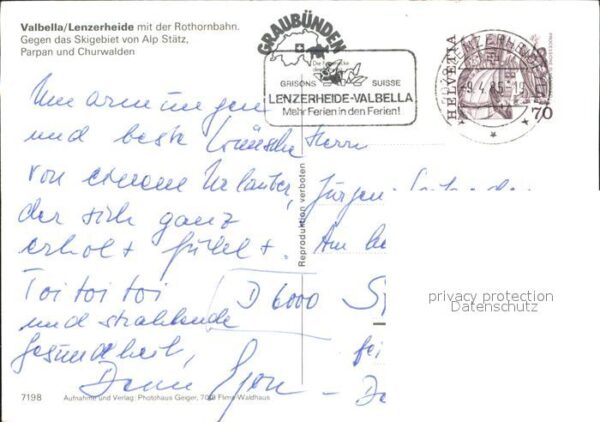 Valbella/Lenzerheide mit der Rothornbahn.
Gegen das Skigebiet von Alp Stätz,
Parpan und Churwalden
GRAUBÜNDEN
GRISONS SUISSE
LENZERHEIDE-VALBELLA
Mehr Ferien in den Ferien!
-9.4.85-19
HELVETIA
70
Umarmungen
und beste Wünsche
von einem Urlauber,
der sich ganz
erholt fühlt.
Toi toi toi
und strahlende
Gesundheit,
Herrn
Jürgen
Am
D 6000
Reproduktion verboten
privacy protection
Datenschutz
7198
Aufnahme und Verlag: Photohaus Geiger, 7018 Flims-Waldhaus